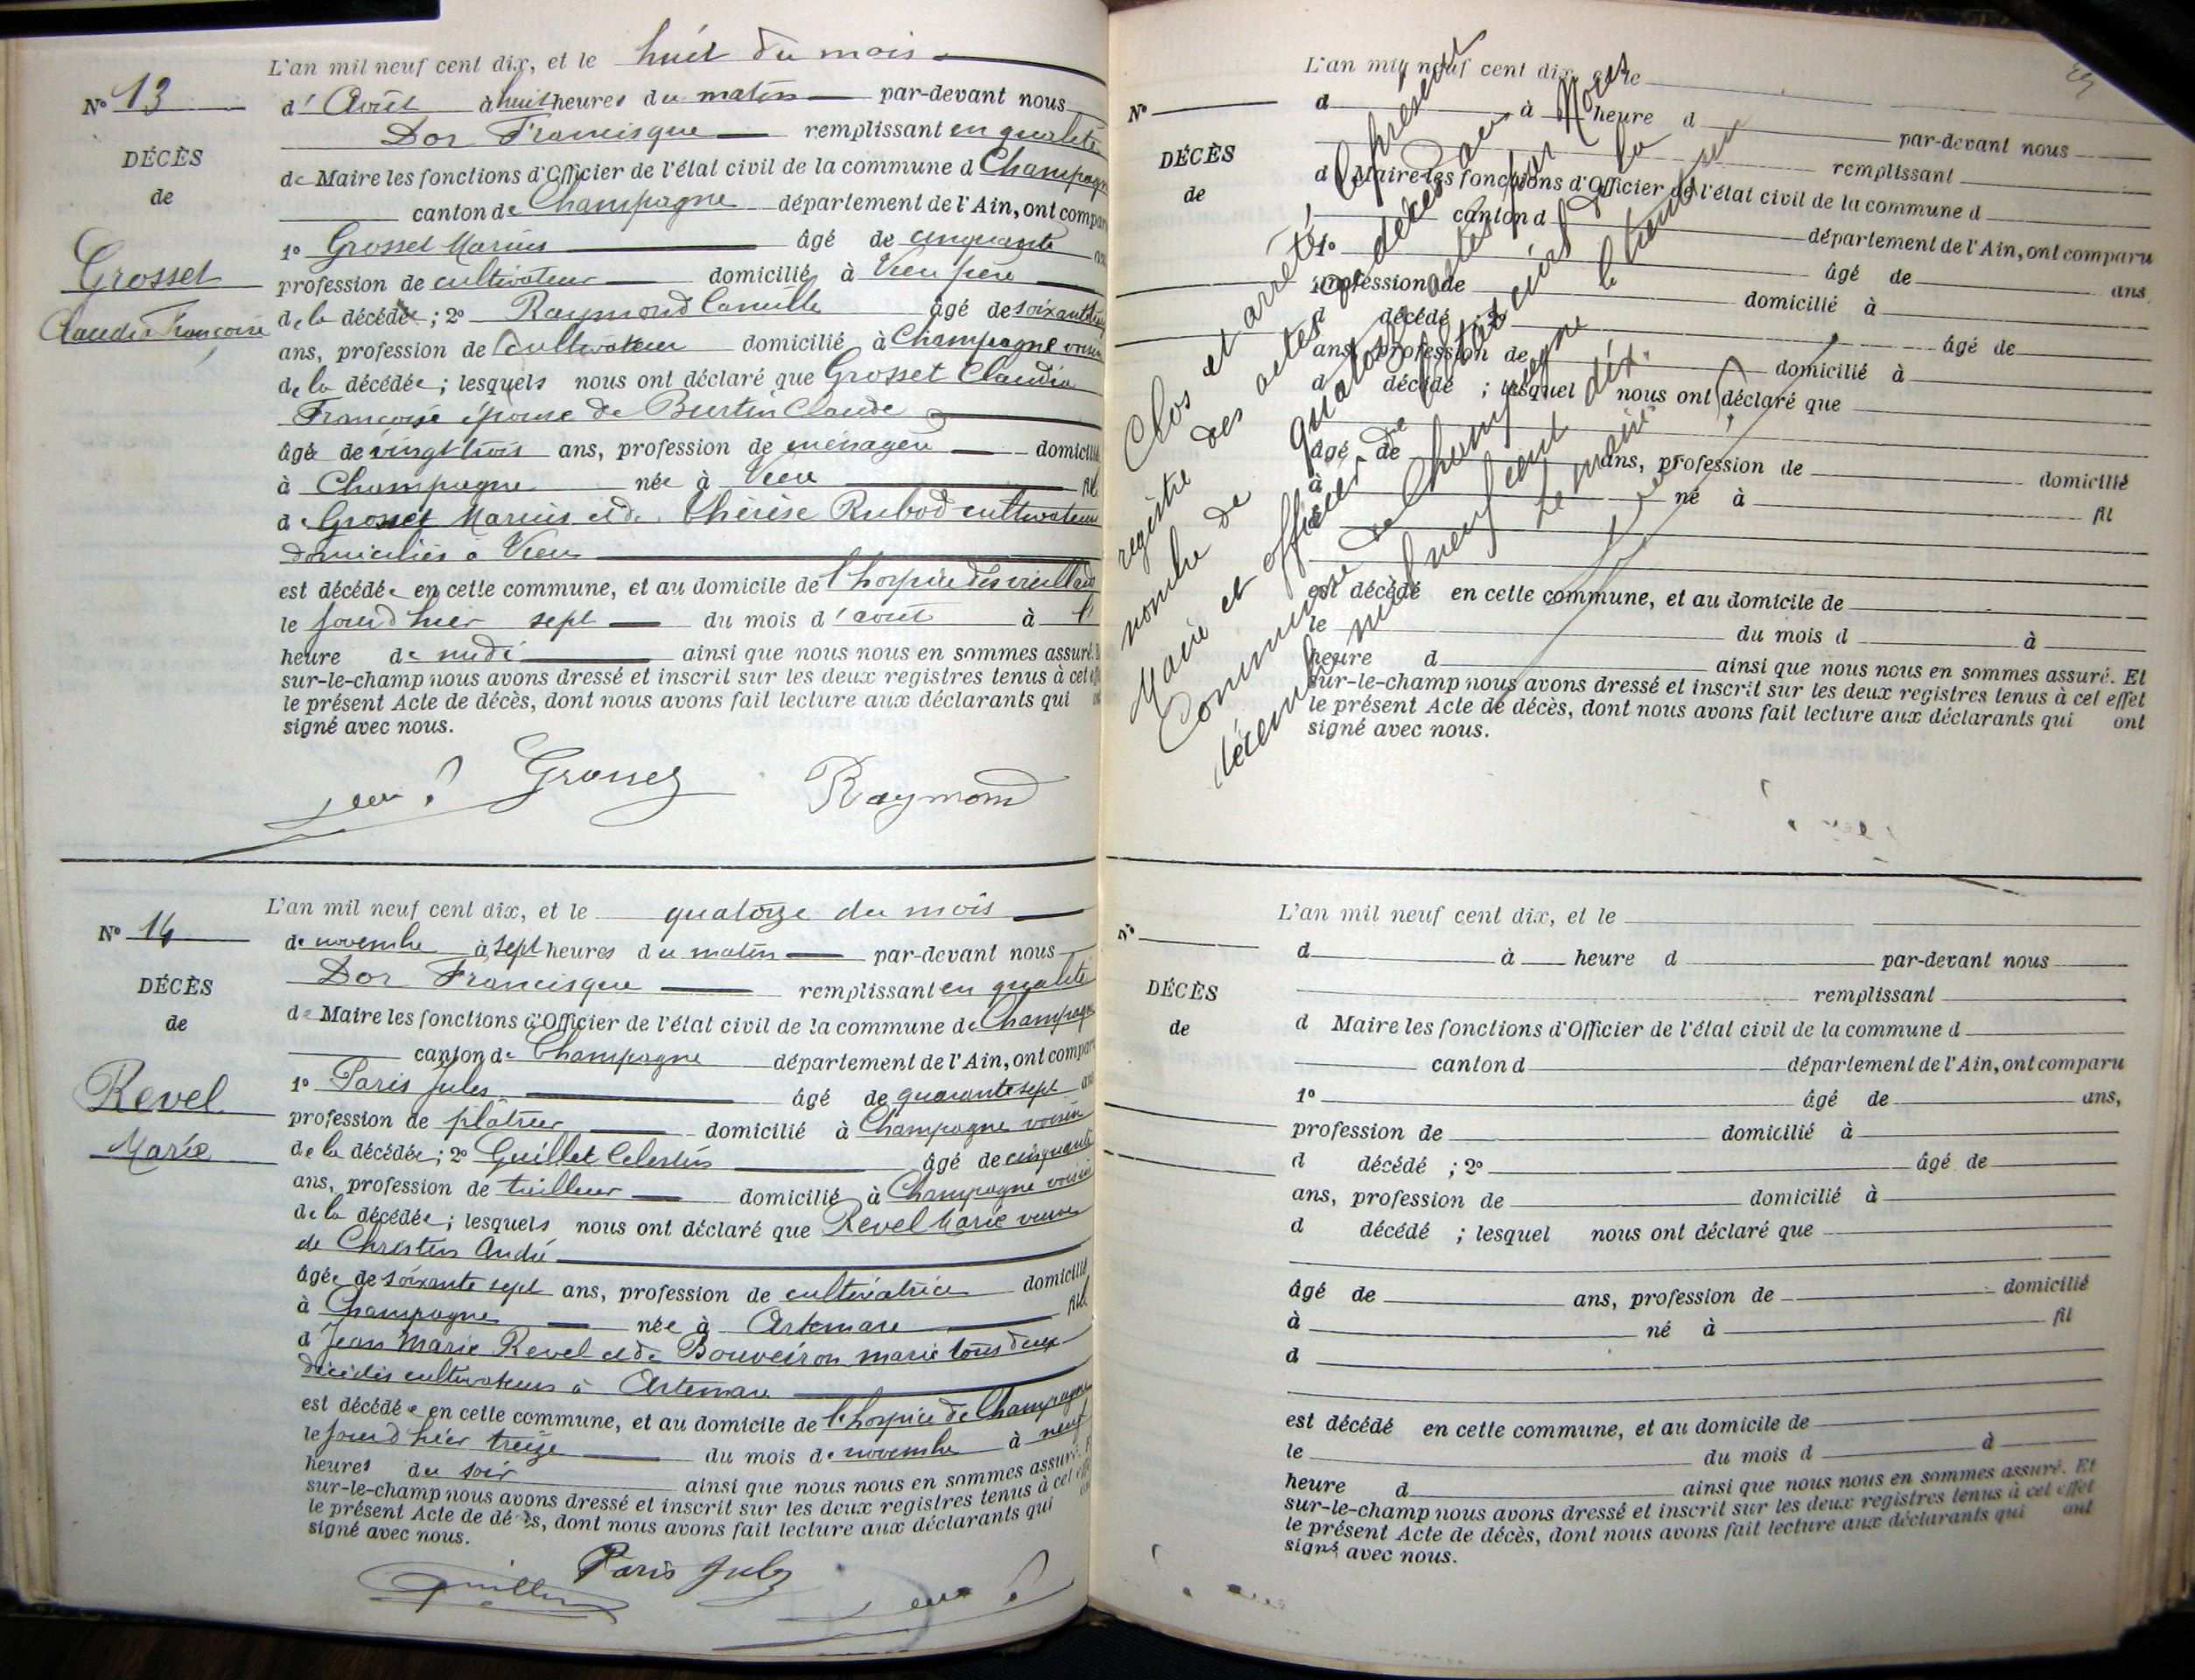 L'an mil neuf cent dix, et le huit du mois
N° 13
d'Août à huit heures du matin par-devant nous
Dor Francisque remplissant en qualité
DÉCÈS
de
de Maire les fonctions d'Officier de l'état civil de la commune d Champagne
canton de Champagne département de l'Ain, ont compar
1° Grosset Marius âgé de cinquante ans
Grosset
Claudia Françoise
profession de cultivateur domicilié à Vieu père
de la décédée; 2° Raymond Camille âgé de
ans, profession de Cultivateur domicilié à Champagne voisin
de la décédée; lesquels nous ont déclaré que Grosset Claudia
Françoise épouse de Burtin Claude
âgée de vingt trois ans, profession de ménagère domicilié
à Champagne née à Vieu fil
de Grosset Marius et de Thérèse Rubod cultivateurs
domiciliés à Vieu
est décédée en cette commune, et au domicile de l'hospice des vieillards
le jour d'hier sept du mois d'aout à
heure de midi ainsi que nous nous en sommes assuré.
sur-le-champ nous avons dressé et inscrit sur les deux registres tenus à cet
le présent Acte de décès, dont nous avons fait lecture aux déclarants qui
signé avec nous.
Grosset Raymond
L'an mil neuf cent dix, et le quatorze du mois
N° 14
de novembre à sept heures du matin par-devant nous
Dor Francisque remplissant en qualité
DÉCÈS
de
de Maire les fonctions d'Officier de l'état civil de la commune de Champagne
canton de Champagne département de l'Ain, ont compar
1° Paris Jules âgé de quarante sept ans
Revel
Marie
profession de plâtrier domicilié à Champagne voisin
de la décédée; 2° Guillet Celestin âgé de cinquante
ans, profession de tailleur domicilié à Champagne voisin
de la décédée; lesquels nous ont déclaré que Revel Marie veuve
de Christin André
âgée de soixante sept ans, profession de cultivatrice domicilié
à Champagne née à Artemare fil
d Jean Marie Revel et de Bouveiron marie tous deux
décédés cultivateurs à Artemare
est décédée en cette commune, et au domicile de l'hospice de Champagne
le jour d'hier treize du mois de novembre à neuf
heures du soir ainsi que nous nous en sommes assuré.
sur-le-champ nous avons dressé et inscrit sur les deux registres tenus à cet
le présent Acte de décès, dont nous avons fait lecture aux déclarants qui
signé avec nous.
Paris Jules
L'an mil neuf cent dix, et le
N°
d à heure d par-devant nous
remplissant
DÉCÈS
de
d Maire les fonctions d'Officier de l'état civil de la commune d
canton d département de l'Ain, ont comparu
1° âgé de ans
profession de domicilié à
d décédé ; 2° âgé de
ans, profession de domicilié à
d décédé ; lesquel nous ont déclaré que
âgé de ans, profession de domicilié
à né à fil
d
est décédé en cette commune, et au domicile de
le du mois d à
heure d ainsi que nous nous en sommes assuré. Et
sur-le-champ nous avons dressé et inscrit sur les deux registres tenus à cet effet
le présent Acte de décès, dont nous avons fait lecture aux déclarants qui ont
signé avec nous.
Clos et arrêté, le présent
registre des actes de décès au
nombre de quatorze actes par Nous
Maire et officier de l'état civil de la
Commune de Champagne le trente un
décembre mil neuf cent dix.
Le maire
L'an mil neuf cent dix, et le
N°
d à heure d par-devant nous
remplissant
DÉCÈS
de
d Maire les fonctions d'Officier de l'état civil de la commune d
canton d département de l'Ain, ont comparu
1° âgé de ans,
profession de domicilié à
d décédé ; 2° âgé de
ans, profession de domicilié à
d décédé ; lesquel nous ont déclaré que
âgé de ans, profession de domicilié
à né à fil
d
est décédé en cette commune, et au domicile de
le du mois d à
heure d ainsi que nous nous en sommes assuré. Et
sur-le-champ nous avons dressé et inscrit sur les deux registres tenus à cet effet
le présent Acte de décès, dont nous avons fait lecture aux déclarants qui ont
signé avec nous.